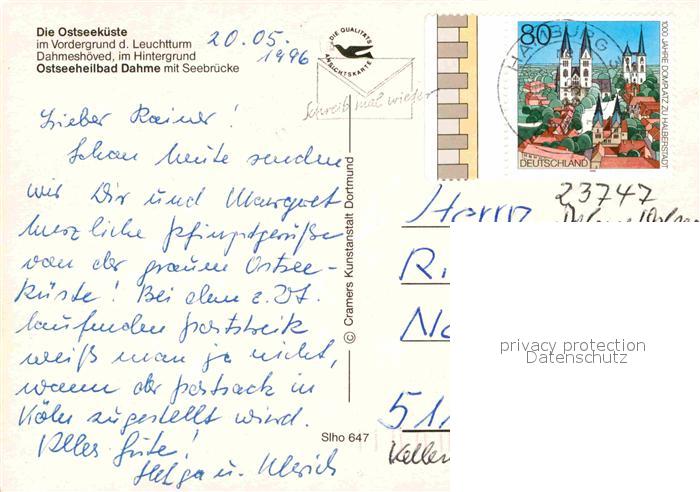 Die Ostseeküste
im Vordergrund d. Leuchtturm
Dahmeshöved, im Hintergrund
Ostseeheilbad Dahme mit Seebrücke
20.05.
1996
DIE QUALITÄTS
ANSICHTSKARTE
Schreib mal wieder
80
HAMBURG
1000 JAHRE DOMPLATZ ZU HALBERSTADT
DEUTSCHLAND
Lieber Rainer!
Schon heute senden
wir Dir und Margret
herzliche Pfingstgrüße
von der grauen Ostsee-
küste! Bei dem z. Zt.
laufenden Poststreik
weiß man ja nicht,
wann der Postsack in
Köln zugestellt wird.
Alles Gute!
Helga u. Ulrich
© Cramers Kunstanstalt Dortmund
Slho 647
23747
Herrn
R.
No
511
Keller
privacy protection
Datenschutz